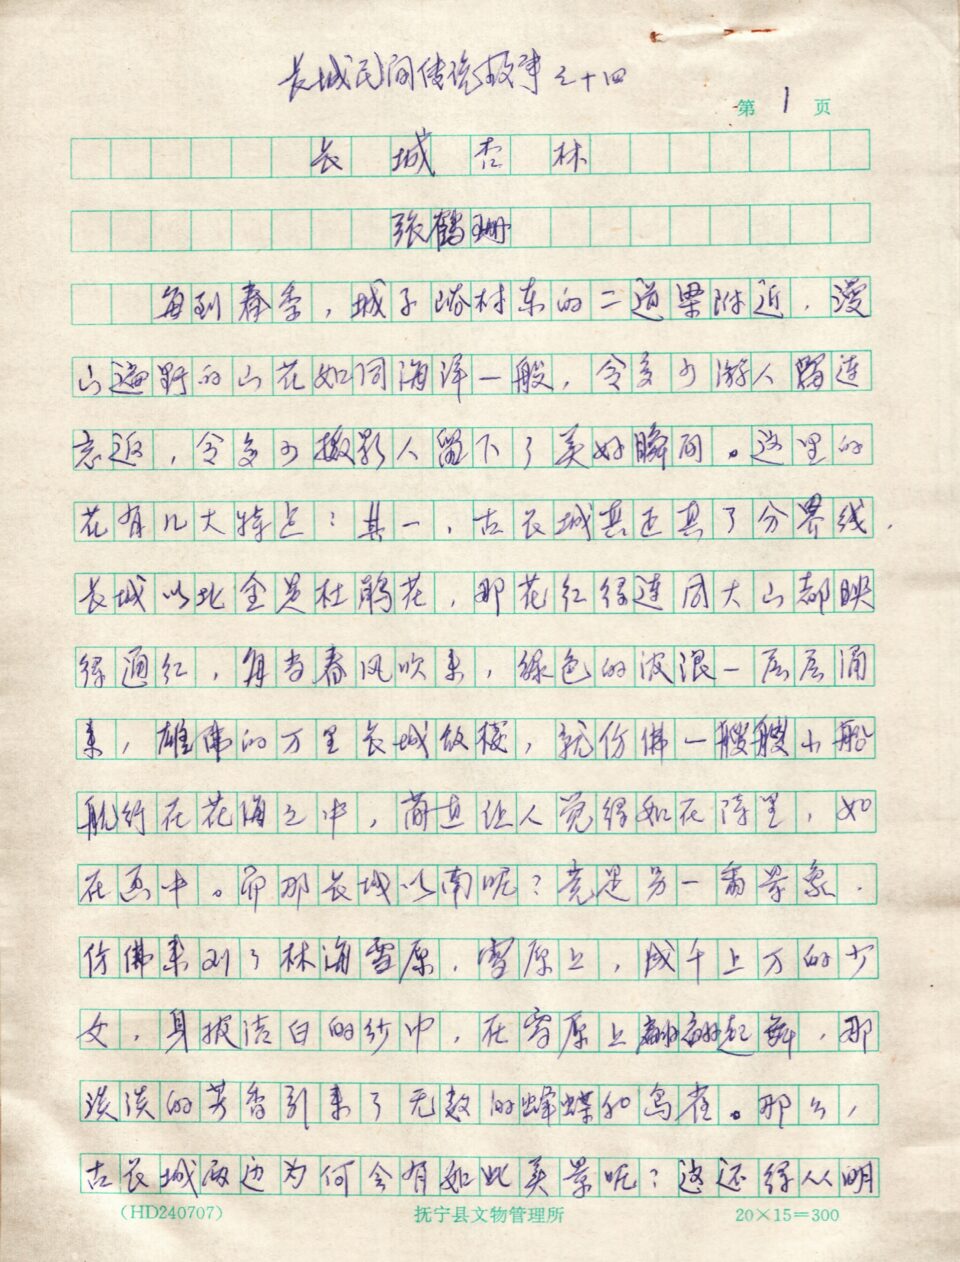 长城民间传说故事之十四
第1页
长城杏林
张鹤珊
每到春季，城子峪村东的二道梁附近，漫
山遍野的山花如同海洋一般，令多少游人留连
忘返，令多少摄影人留下了美好瞬间。这里的
花有几大特点：其一，古长城真正是了分界线，
长城以北全是杜鹃花，那花红得连同大山都映
得通红，每当春风吹来，绿色的波浪一层层涌
来，雄伟的万里长城敌楼，就仿佛一艘艘小船
航行在花海之中，简直让人觉得如在诗里，如
在画中。而那长城以南呢？竟是另一番景象，
仿佛来到了林海雪原，雪原上，成千上万的少
女，身披洁白的纱巾，在雪原上翩翩起舞，那
淡淡的芳香引来了无数的蜂蝶和鸟雀。那么，
古长城两边为何会有如此美景呢？这还得从明
（HD240707）
抚宁县文物管理所
20×15＝300